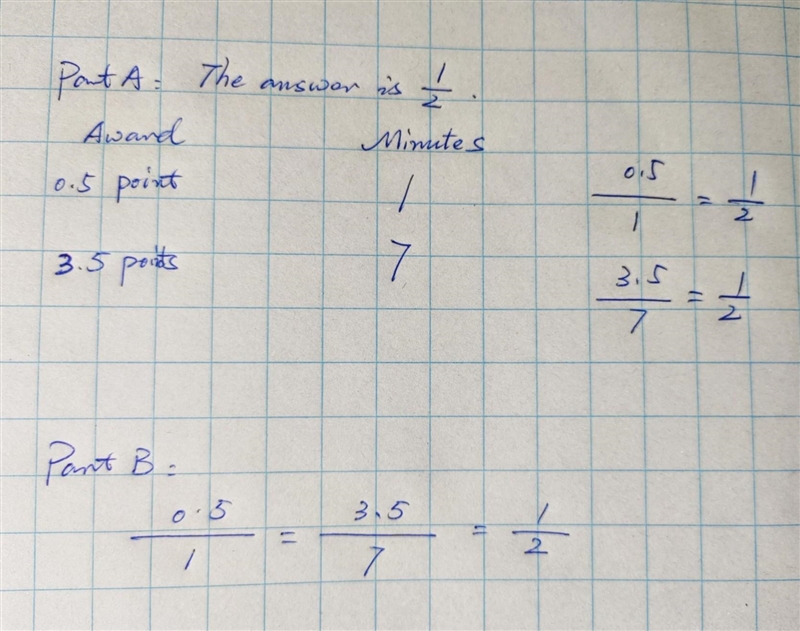 Part A: The answer is 1/2.
Award Minutes
0.5 point 1 0.5/1 = 1/2
3.5 points 7 3.5/7 = 1/2
Part B:
0.5/1 = 3.5/7 = 1/2